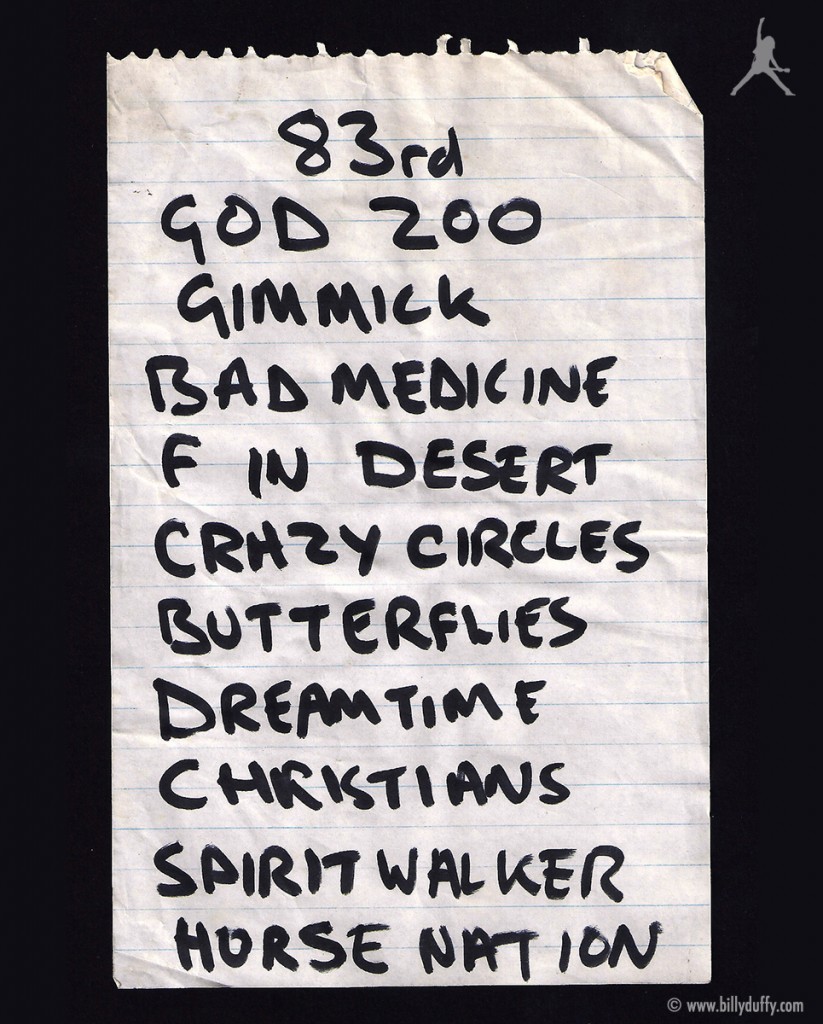 83rd
GOD ZOO
GIMMICK
BAD MEDICINE
F IN DESERT
CRAZY CIRCLES
BUTTERFLIES
DREAMTIME
CHRISTIANS
SPIRITWALKER
HORSE NATION
© www.billyduffy.com